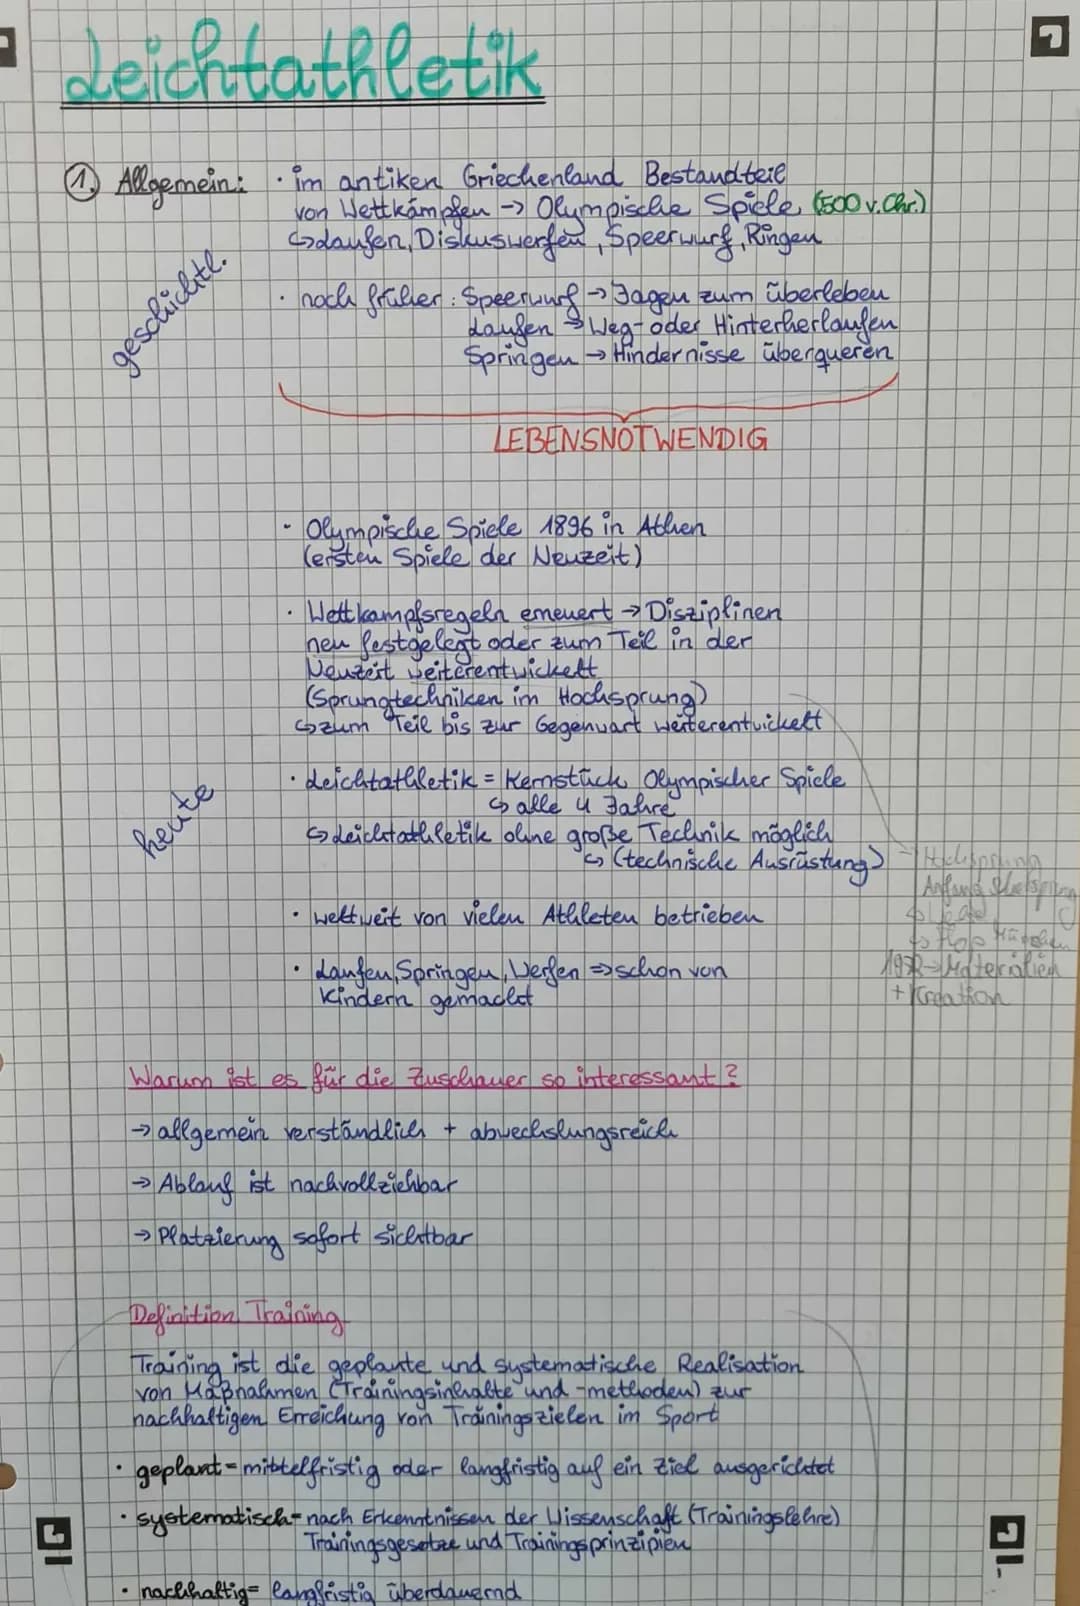 Leichtathletik
1. Allgemein:
geschichtl.
· im antiken Griechenland Bestandteil
von Wettkämpfen → Olympische Spiele (500 v. Chr.)
↳ Laufen, Diskuswerfen, Speerwurf, Ringen
· noch früher: Speerwurf → Jagen zum überleben
Laufen → Weg- oder Hinterherlaufen
Springen → Hindernisse überqueren
LEBENSNOTWENDIG
heute
· Olympische Spiele 1896 in Athen
(ersten Spiele der Neuzeit)
· Wettkampfsregeln erneuert → Disziplinen
neu festgelegt oder zum Teil in der
Neuzeit weiterentwickelt
(Sprungtechniken im Hochsprung)
↳ zum Teil bis zur Gegenwart weiterentwickelt
· Leichtathletik = Kernstück Olympischer Spiele
↳ alle 4 Jahre
↳ Leichtathletik ohne große Technik möglich
↳ (technische Ausrüstung)
→ Hochsprung
Anfang
↳ Flop München
→ Materialien
+ Kreation
· weltweit von vielen Athleten betrieben
· Laufen, Springen, Werfen ⇒ schon von
Kindern gemacht
Warum ist es für die Zuschauer so interessant?
→ allgemein verständlich + abwechslungsreich
→ Ablauf ist nachvollziehbar
→ Platzierung sofort sichtbar
Definition Training
Training ist die geplante und systematische Realisation
von Maßnahmen (Trainingsinhalte und -methoden) zur
nachhaltigen Erreichung von Trainingszielen im Sport
· geplant = mittelfristig oder langfristig auf ein Ziel ausgerichtet
· systematisch = nach Erkenntnissen der Wissenschaft (Trainingslehre)
Trainingsgesetze und Trainingsprinzipien
· nachhaltig = langfristig überdauernd